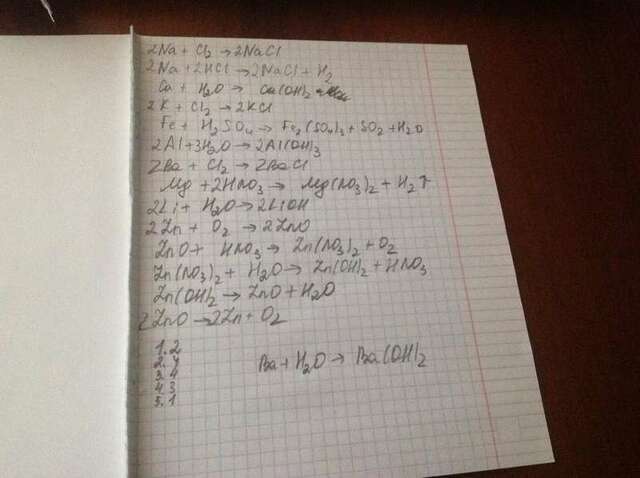 2Na + Cl₂ → 2NaCl
2Na + 2HCl → 2NaCl + H₂
Ca + H₂O → Ca(OH)₂
2K + Cl₂ → 2KCl
Fe + H₂SO₄ → Fe₂(SO₄)₃ + SO₂ + H₂O
2Al + 3H₂O → 2Al(OH)₃
2Ba + Cl₂ → 2BaCl
Mg + 2HNO₃ → Mg(NO₃)₂ + H₂↑
2Li + H₂O → 2LiOH
2Zn + O₂ → 2ZnO
ZnO + HNO₃ → Zn(NO₃)₂ + O₂
Zn(NO₃)₂ + H₂O → Zn(OH)₂ + HNO₃
Zn(OH)₂ → ZnO + H₂O
2ZnO → 2Zn + O₂
1. 2
2. 4
3. 4
4. 3
5. 1
Ba + H₂O → Ba(OH)₂